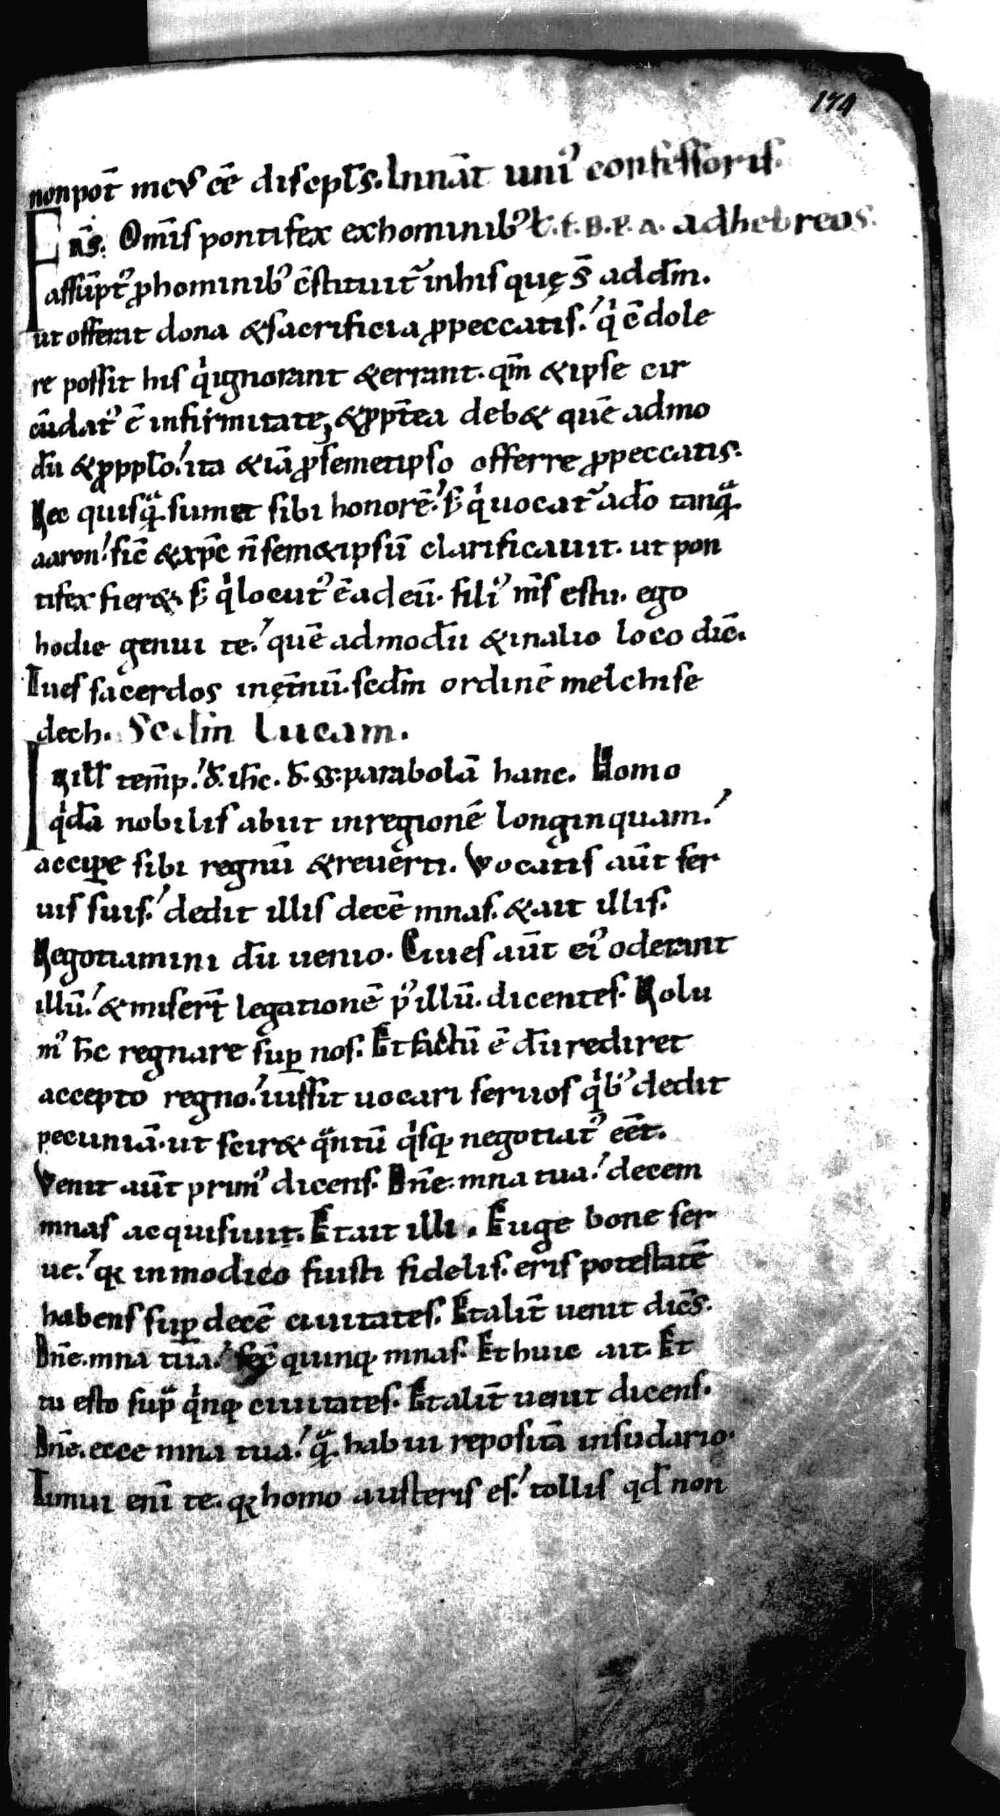 174
non pot̄ meus eē discipl̄s. In nat̄ uniꝰ confessoris.
Epl̄a beati pauli ap̄li ad hebreos.
FRS̄. Om̄is pontifex ex hominibꝰ
assūptꝰ ꝓ hominibꝰ c̄stituit᷑ in his quę s̄ ad dm̄.
ut offerat dona & sacrificia ꝓ peccatis. qͥ c̄dole
re possit his qͥ ignorant & errant. qm̄ & ipse cir
cūdatꝰ ē infirmitate, & ꝓpt̄ea deb& quē admo
dū & ꝓ ppl̄o. ita & iā ꝓ semetipso offerre ꝓ peccatis.
Nec quisqᷓ. sumit sibi honorē. s; qͥ uocat᷑ a dō tanqᷓ.
aaron. sic̄ & xp̄c n̄ semetipsū clarificauit. ut pon
tifex fier&. s; qͥ locutꝰ ē ad eū. filiꝰ m̄s es tu. ego
hodie genui te. quē ad modū & in alio loco dic̄.
Tu es sacerdos in ęt̄nū. scdm̄ ordinē melchise
dech. Scd̄m Lucam.
IN ill̄ temp̄. d̄. ih̄c. d̄. s̄. parabolā hanc. Homo
qͥdā nobilis abiit in regionē longinquam.
accipe sibi regnū & reuerti. Vocatis aūt ser
uis suis. dedit illis decē mnas. & ait illis.
Negotiamini dū uenio. Ciues aūt eiꝰ oderant
illū. & misert̄ legationē pꝰ illū. dicentes. Nolu
mꝰ h̄c regnare suꝑ nos. Et factū ē dū rediret
accepto regno. iussit uocari seruos qͥbꝰ dedit
pecuniā. ut scir& qᷓntū qͥsq; negotiatꝰ eēt.
Venit aūt primꝰ dicens. Dn̄e. mna tua. decem
mnas acquisiuit. Et ait illi. Euge bone ser
ue. qꝛ in modico fuisti fidelis. eris potestatē
habens suꝑ decē ciuitates. Et alit̄ uenit dic̄s.
Dn̄e. mna tua. fec̄ quinq; mnas. Et huic ait. Et
tu esto supᷓ qͥnq; ciuitates. Et alit̄ uenit dicens.
Dn̄e. ecce mna tua. qᷓ. habui repositā in sudario.
Timui enī te. qꝛ homo austeris es. tollis qd̄ non